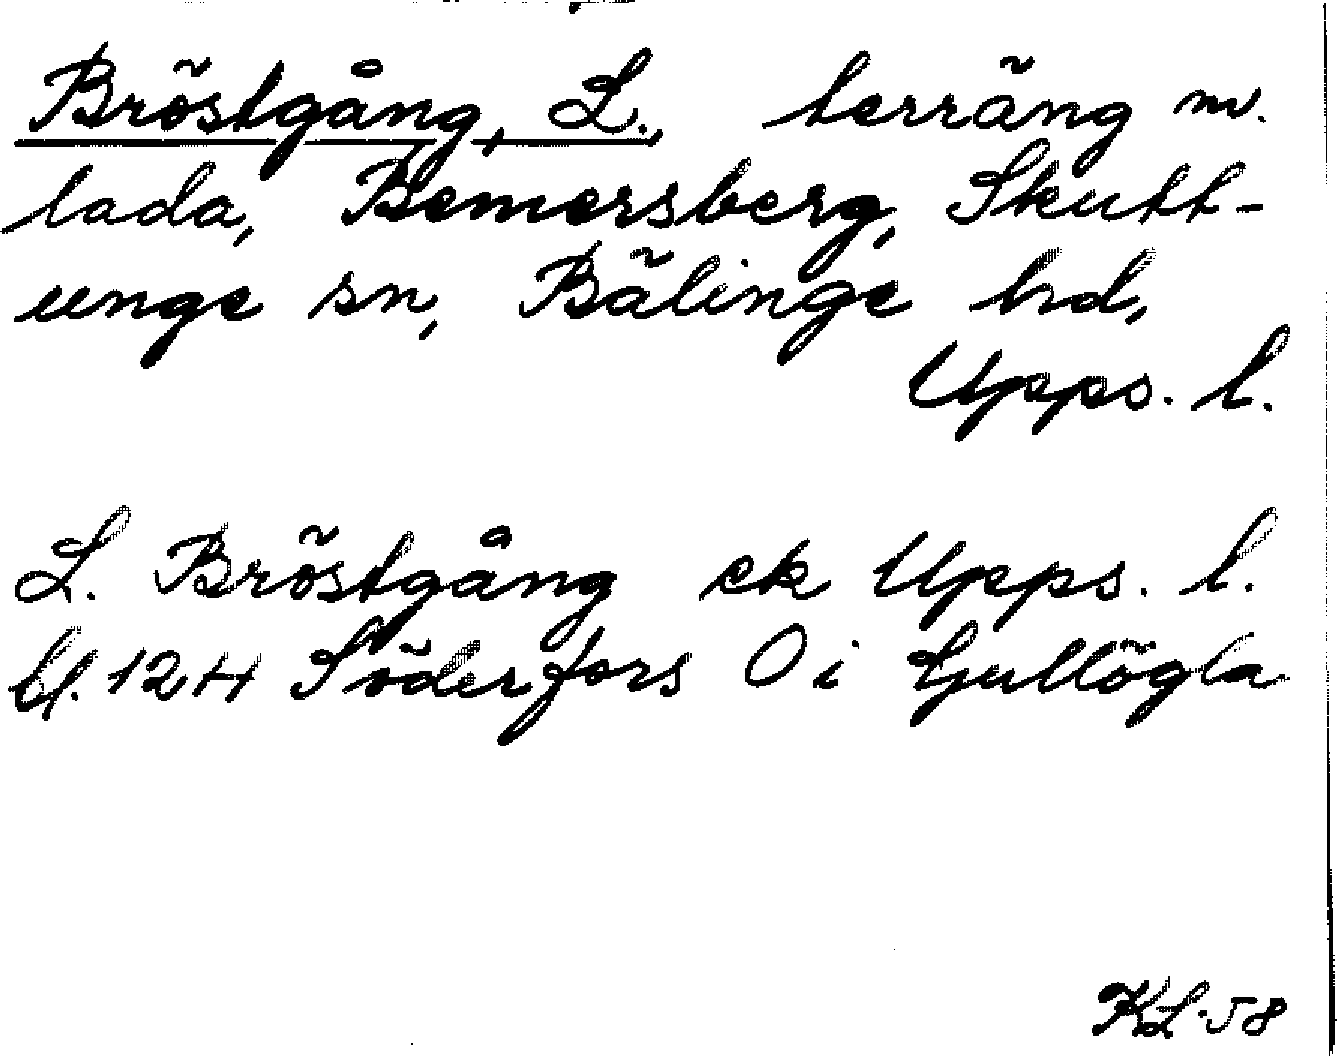 Bröstgång, L., terräng m.
lada, Bemersberg, Skutt-
unge sn, Bälinge hd,
Upps. l.
L. Bröstgång ek Upps. l.
bl. 12H Söderfors O i Gullögla
KL-58